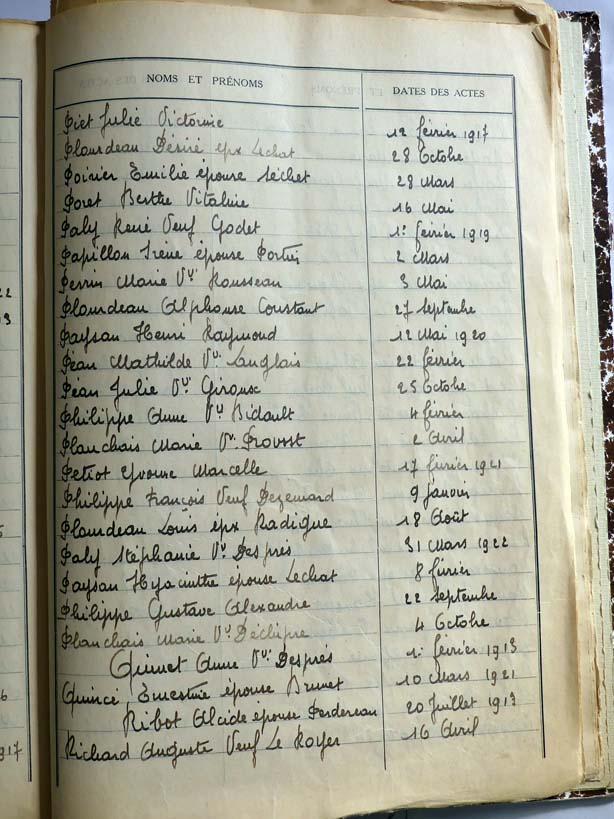 NOMS ET PRÉNOMS DATES DES ACTES
Piet Julie Victorine 12 février 1917
Plourdeau Désiré épx Lechat 28 Octobre
Poirier Emilie épouse Séchet 28 Mars
Poret Berthe Vitaline 16 Mai
Paly René Veuf Godet 1er février 1919
Papillon Irène épouse 2 Mars
Perrin Marie Vve Rousseau 3 Mai
Plourdeau Alphonse Constant 27 Septembre
Paysan Henri Raymond 12 Mai 1920
Péan Mathilde Vve Langlais 22 février
Péan Julie Vve Giroux 25 Octobre
Philippe Anne Vve Bidault 4 février
Planchais Marie Vve Provost 2 Avril
Petiot Yvonne Marcelle 17 février 1921
Philippe François Veuf 9 Janvier
Plourdeau Louis épx Radigue 18 Août
Paly Stéphanie Vve Després 31 Mars 1922
Paysan Hyacinthe épouse Lechat 8 février
Philippe Gustave Alexandre 22 Septembre
Planchais Marie Vve 4 Octobre
Quimet Anne Vve Després 1er février 1913
Quincé Ernestine épouse Brunet 10 Mars 1921
Ribot Alcide épouse Perdereau 20 Juillet 1913
Richard Auguste Veuf Le Royer 16 Avril
22
6
917